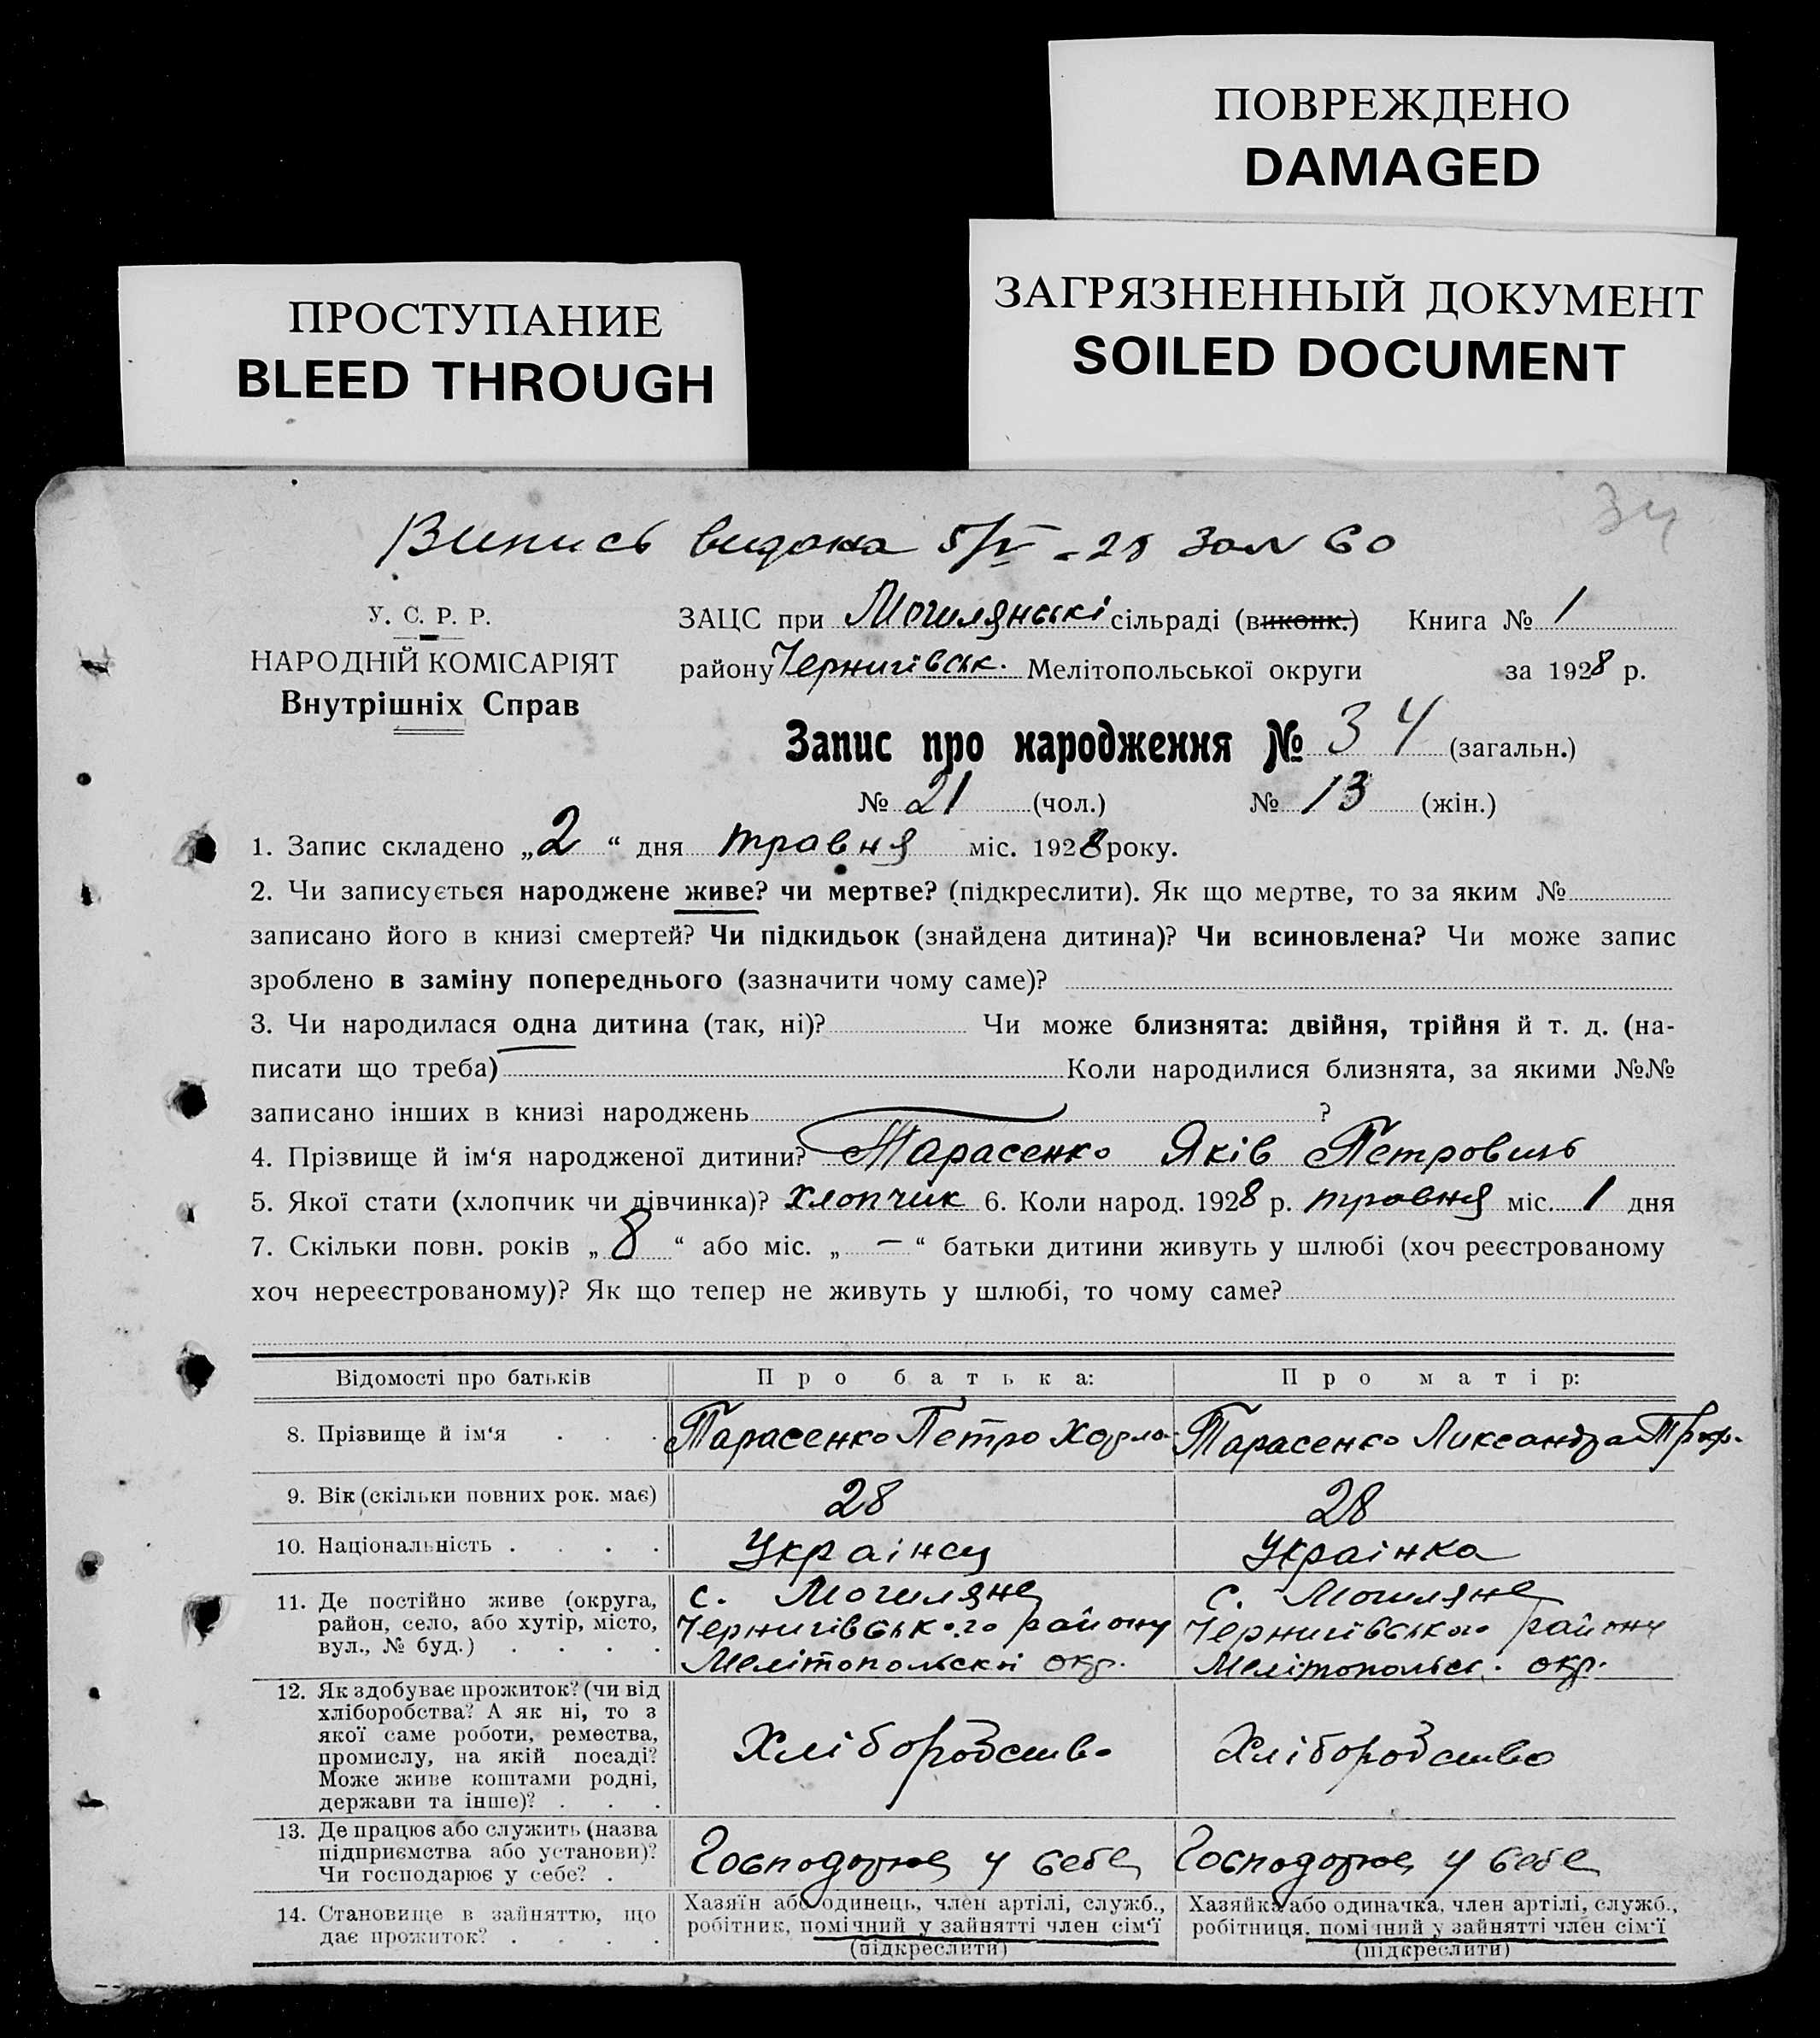 ПОВРЕЖДЕНО
DAMAGED
ЗАГРЯЗНЕННЫЙ ДОКУМЕНТ
SOILED DOCUMENT
ПРОСТУПАНИЕ
BLEED THROUGH
34
Випись видана 5/V -28 за № 60
У. С. Р. Р.
НАРОДНІЙ КОМІСАРІЯТ
Внутрішніх Справ
ЗАЦС при Могилянські сільраді (виконк.) Книга № 1
району Чернигівськ. Мелітопольської округи за 1928 р.
Запис про народження № 34 (загальн.)
№ 21 (чол.) № 13 (жін.)
1. Запис складено „2“ дня травня міс. 1928 року.
2. Чи записується народжене живе? чи мертве? (підкреслити). Як що мертве, то за яким №
записано його в книзі смертей? Чи підкидьок (знайдена дитина)? Чи всиновлена? Чи може запис
зроблено в заміну попереднього (зазначити чому саме)?
3. Чи народилася одна дитина (так, ні)? Чи може близнята: двійня, трійня й т. д. (на-
писати що треба) Коли народилися близнята, за якими №№
записано інших в книзі народжень ?
4. Прізвище й ім‘я народженої дитини? Тарасенко Яків Петровичь
5. Якої стати (хлопчик чи дівчинка)? хлопчик 6. Коли народ. 1928 р. травня міс. 1 дня
7. Скільки повн. років „8“ або міс. „—“ батьки дитини живуть у шлюбі (хоч реєстрованому
хоч нереєстрованому)? Як що тепер не живуть у шлюбі, то чому саме?
Відомості про батьків Про батька: Про матір:
8. Прізвище й ім‘я . . . Тарасенко Петро Тарасенко Александра
9. Вік (скільки повних рок. має) 28 28
10. Національність . . . . Украінец Украінка
11. Де постійно живе (округа,
район, село, або хутір, місто,
вул., № буд.) . . . .
с. Могиляне
Чернигівського району
Мелітопольскі окр.
с. Могиляне
Чернигівського району
Мелітопольск. окр.
12. Як здобуває прожиток? (чи від
хліборобства? А як ні, то з
якої саме роботи, ремества,
промислу, на якій посаді?
Може живе коштами родні,
держави та інше)? . . .
Хліборобство
Хліборобство
13. Де працює або служить (назва
підприємства або установи)?
Чи господарює у себе? .
Господорює у себе
Господорює у себе
14. Становище в зайняттю, що
дає прожиток? . . . .
Хазяїн або одинець, член артілі, служб.,
робітник, помічний у зайнятті член сім‘ї
(підкреслити)
Хазяйка або одиначка, член артілі, служб.,
робітниця, помічний у зайнятті член сім‘ї
(підкреслити)